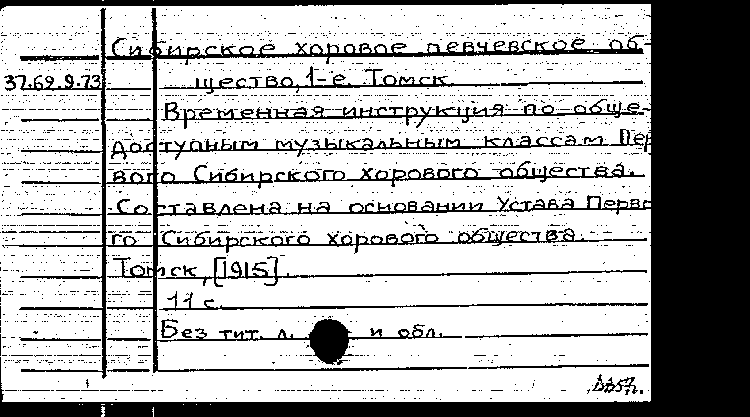 Сибирское хоровое певчевское об-
37.69.9.73 щество, 1-е. Томск.
Временная инструкция по обще-
доступным музыкальным классам Пер
вого Сибирского хорового общества.
Составлена на основании Устава Перво
го Сибирского хорового общества.
Томск, [1915].
11 с.
Без тит. л. и обл.